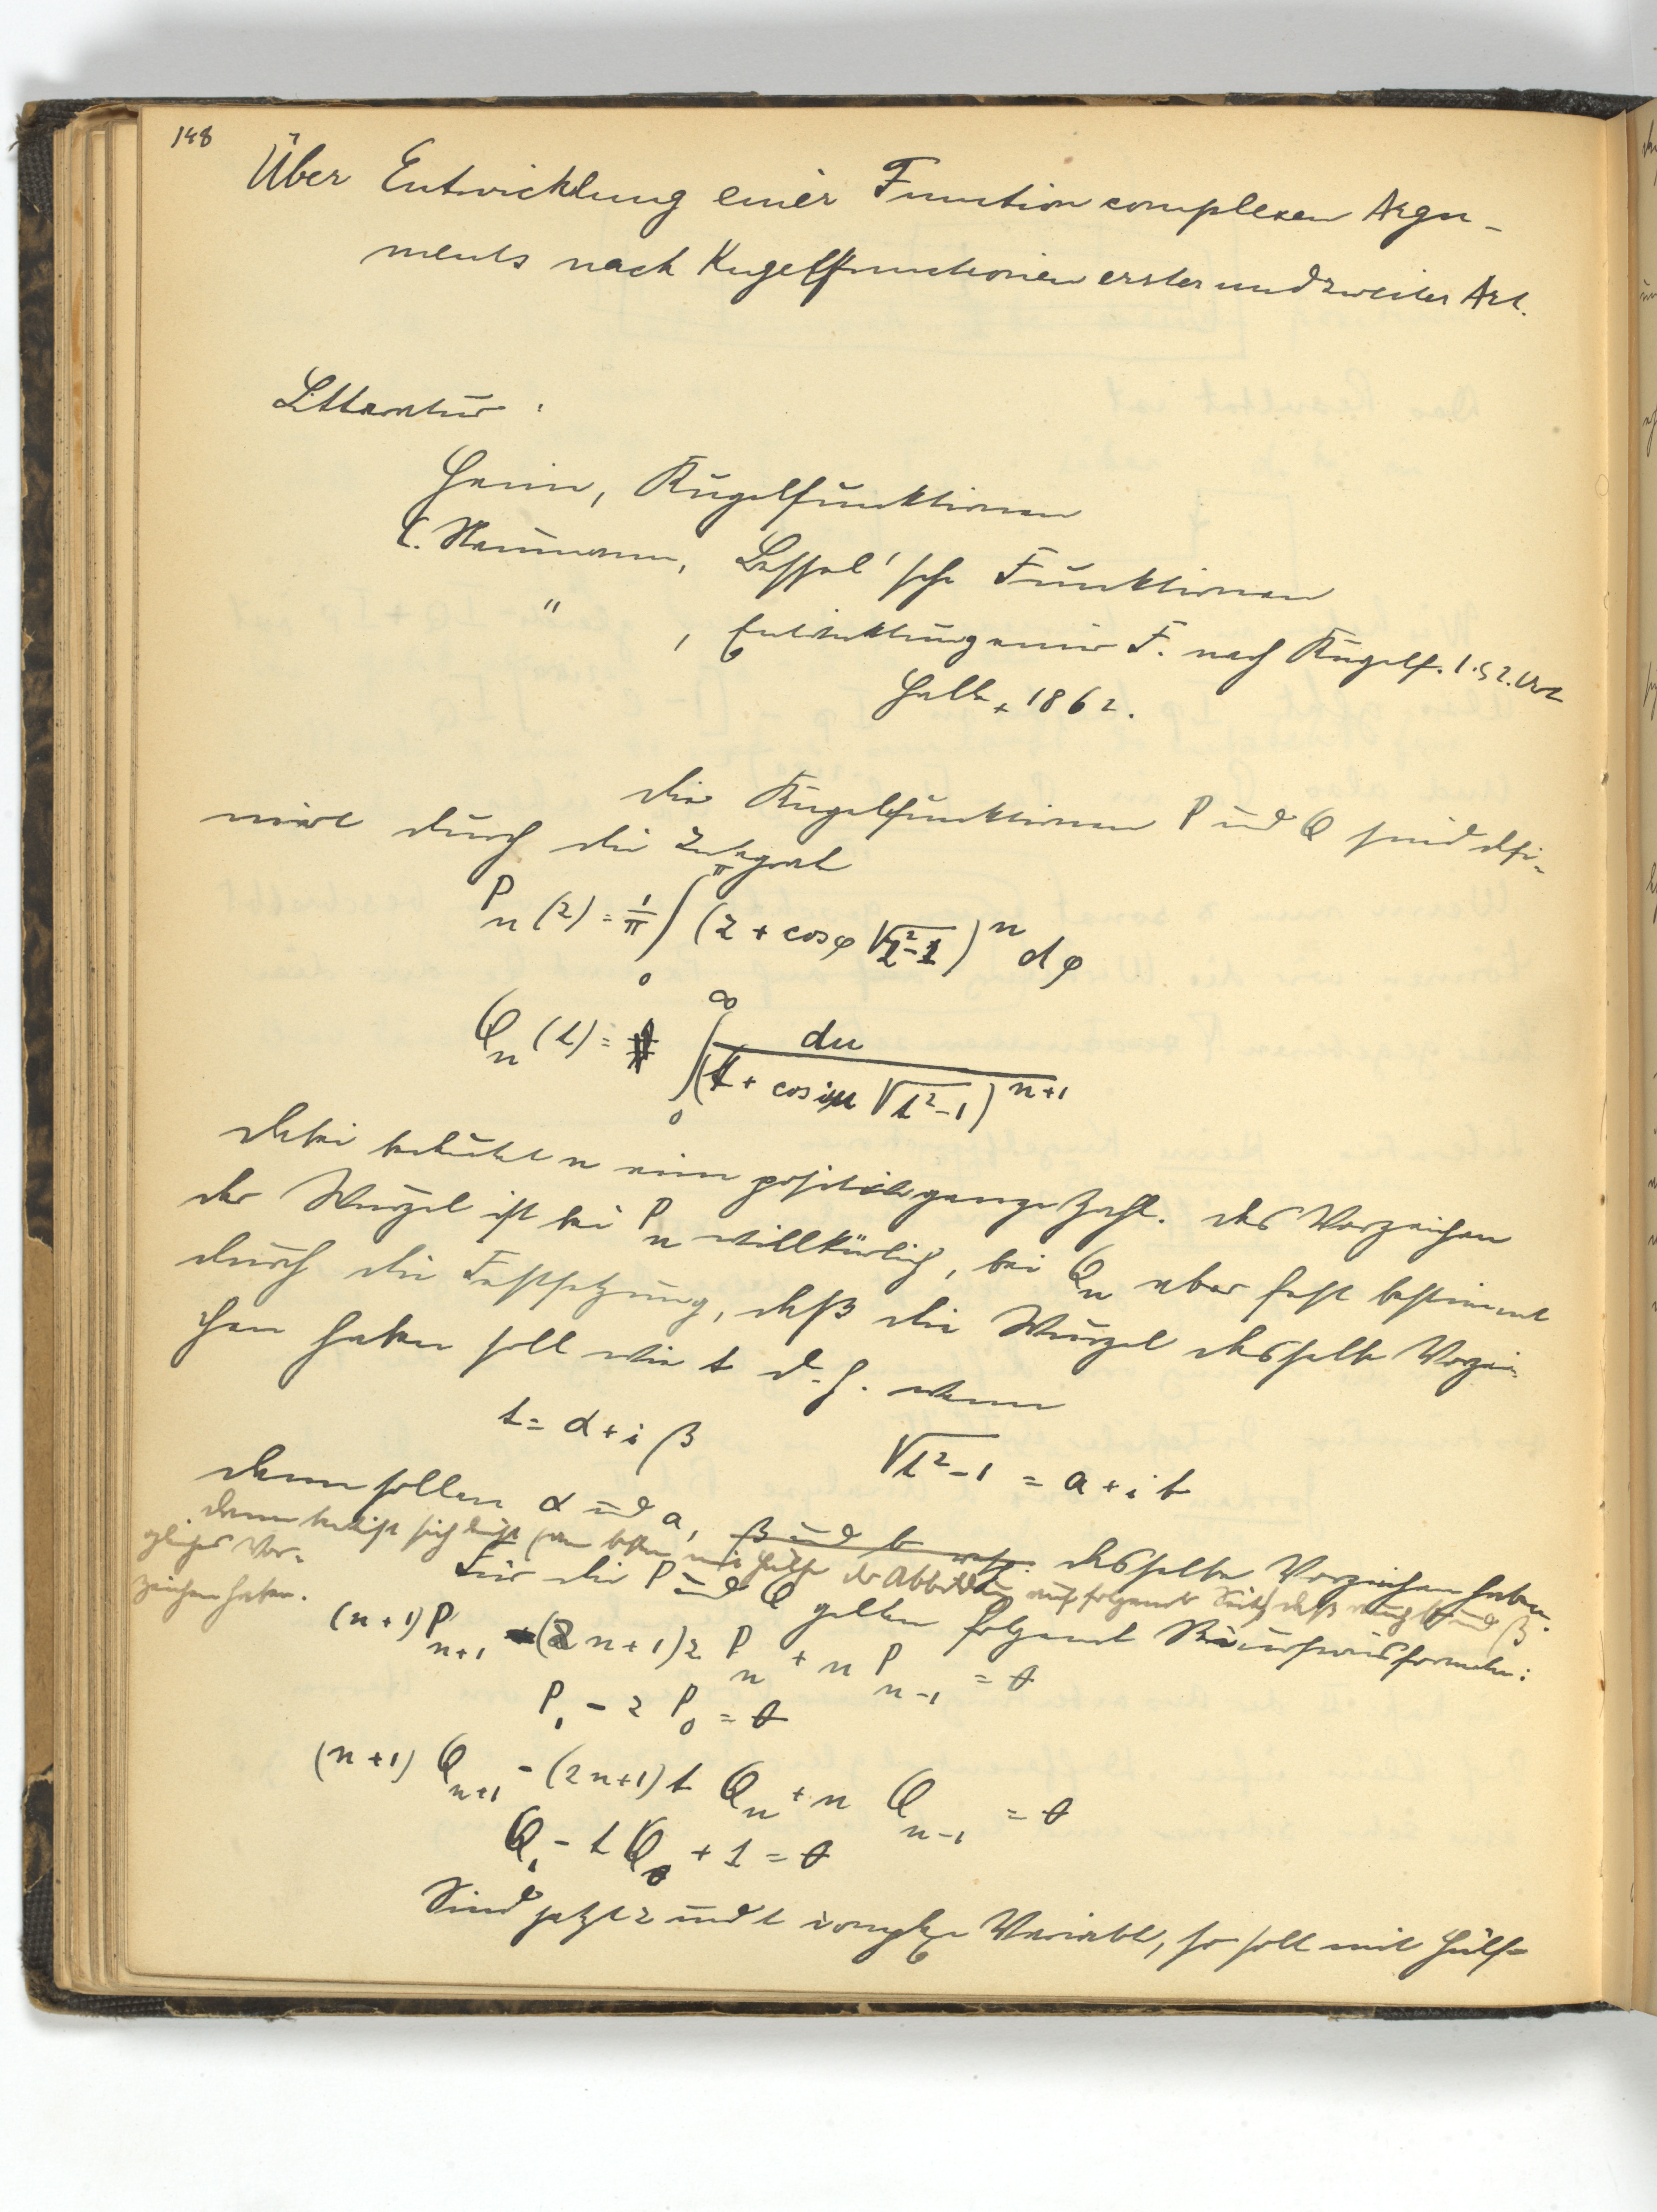 148
Über Entwicklung einer Function complexen Argu-
ments nach Kugelfunctionen erster und zweiter Art.
Litteratur:
Heine, Kugelfunktionen
C. Neumann, Bessel'sche Funktionen
" , Entwicklung einer F. nach Kugelf. 1. & 2. Art
Halle, 1862.
Die Kugelfunktionen P und Q sind defi-
niert durch die Integrale
P_n(z) = 1/π ∫_0^π (z + cos φ √(z²-1))^n dφ
Q_n(t) = ∫_0^∞ du / (t + cos iu √(t²-1))^(n+1)
Dabei bedeutet n eine positive ganze Zahl. Das Vorzeichen
der Wurzel ist bei P_n willkürlich, bei Q_n aber fest bestimmt
durch die Festsetzung, daß die Wurzel dasselbe Vorzei-
chen haben soll wie t d.h. wenn
t = α + iβ √(t²-1) = a + ib
dann sollen α und a, β und b dasselbe Vorzeichen haben.
dann sich leicht mit Hülfe der Abbildung auf folgender Seite, daß auch b und β
gleiches Vor-
zeichen haben.
Für die P und Q gelten folgende Recursionsformeln:
(n+1)P_{n+1} - (2n+1)z P_n + n P_{n-1} = 0
P_1 - z P_0 = 0
(n+1) Q_{n+1} - (2n+1)t Q_n + n Q_{n-1} = 0
Q_1 - t Q_0 + 1 = 0
Sind jetzt z und t complexe Variable, so soll mit Hülfe